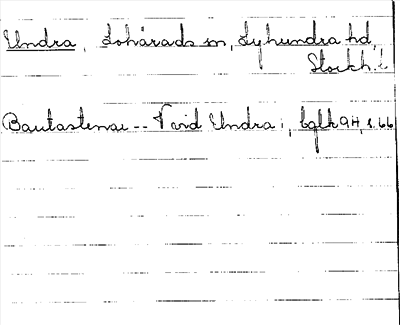 Undra, Lohärads sn, Lyhundra hd,
Stockh. l.
Bautastenar -- Vvid Undra; bglh 9H, s. 66